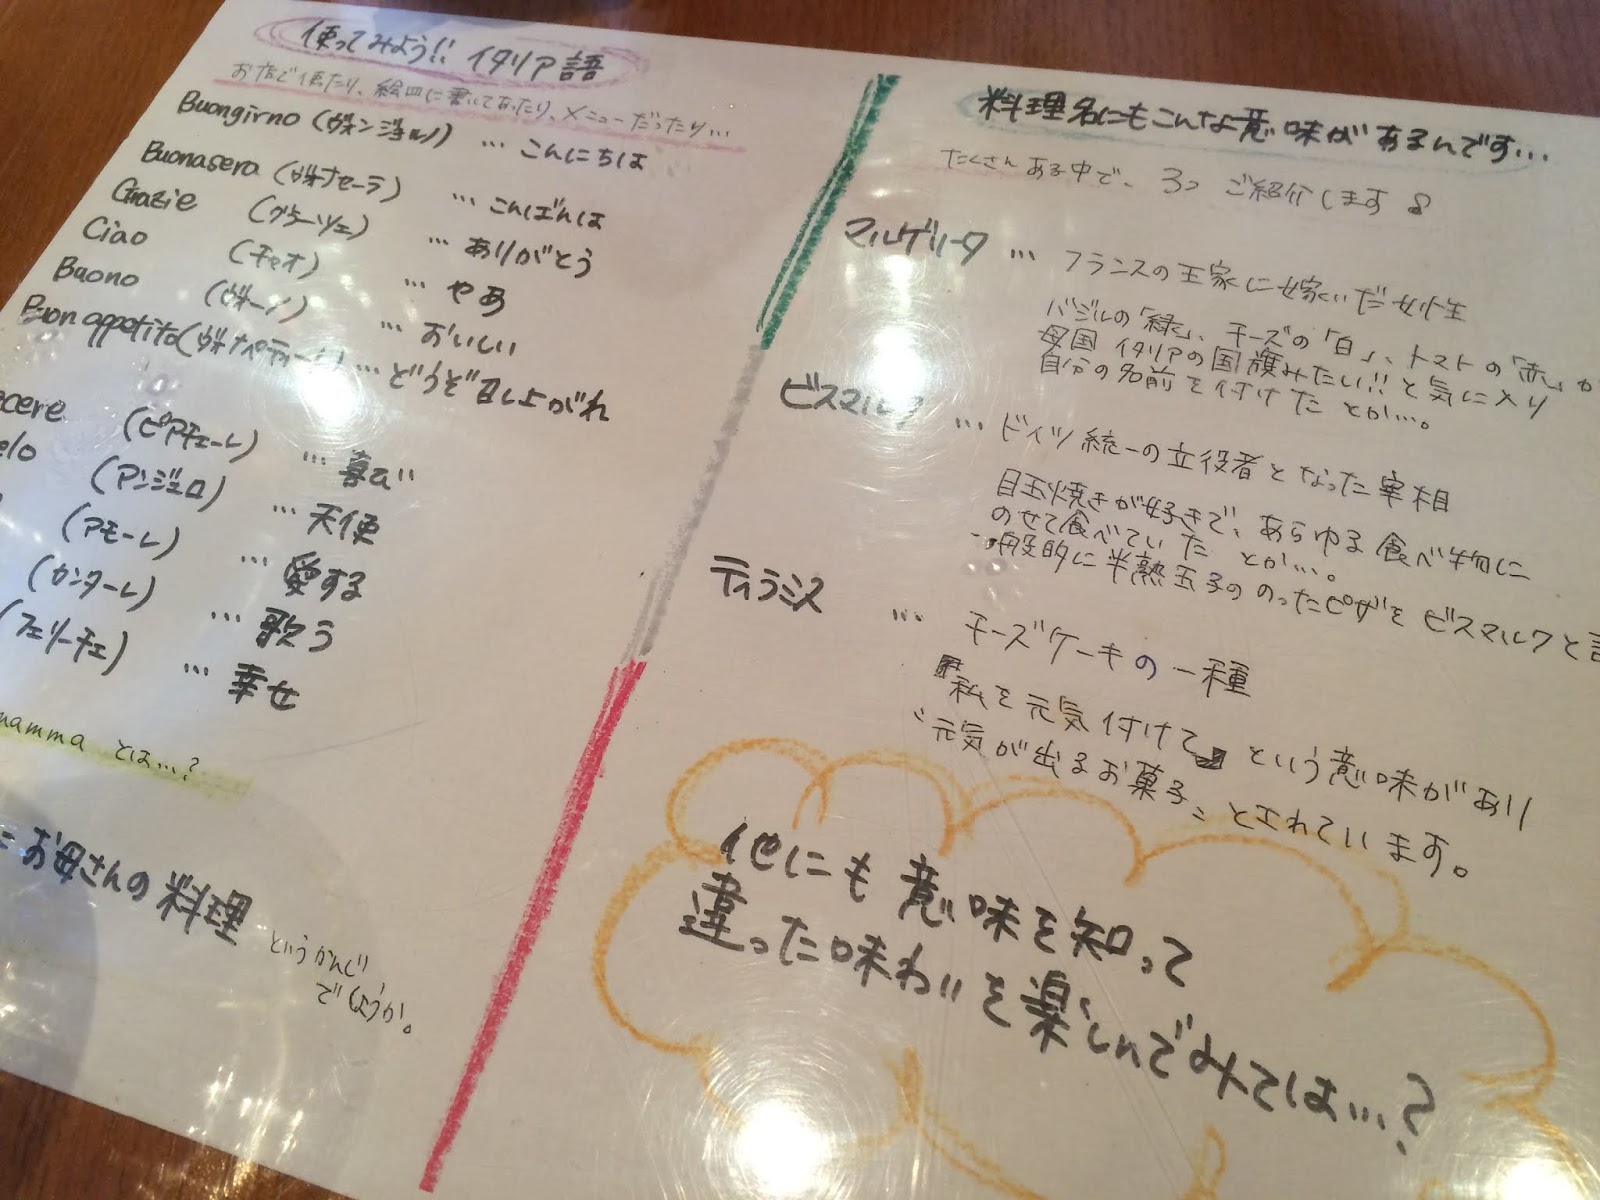 使ってみよう!! イタリア語
お店で使たり、絵皿に書いてあったり、メニューだったり…
Buongirno (ヴォンジョルノ) … こんにちは
Buonasera (ヴォナセーラ) … こんばんは
Grazie (グラーツィェ) … ありがとう
Ciao (チャオ) … やあ
Buono (ヴォーノ) … おいしい
Buon appetito (ヴォナペティート) … どうぞ召し上がれ
cere (ピアチェーレ) … 喜び
elo (アンジェロ) … 天使
(アモーレ) … 愛する
(カンターレ) … 歌う
(フェリーチェ) … 幸せ
mamma とは…?
= お母さんの料理 というかんじ
でしょうか。
料理名にもこんな意味があるんです…
たくさんある中で、3つ ご紹介します♪
マルゲリータ … フランスの王家に嫁いだ女性
バジルの「緑」、チーズの「白」、トマトの「赤」が
母国 イタリアの国旗みたい!! と気に入り
自分の名前を付けた とか…。
ビスマルク … ドイツ統一の立役者となった宰相
目玉焼きが好きで、あらゆる食べ物に
のせて食べていた とか…。
一般的に半熟玉子の のったピザを ビスマルクと言
ティラミス … チーズケーキの一種
"私を元気付けて" という意味があり
"元気が出るお菓子" とされています。
他にも意味を知って
違った味わいを楽しんでみては…?